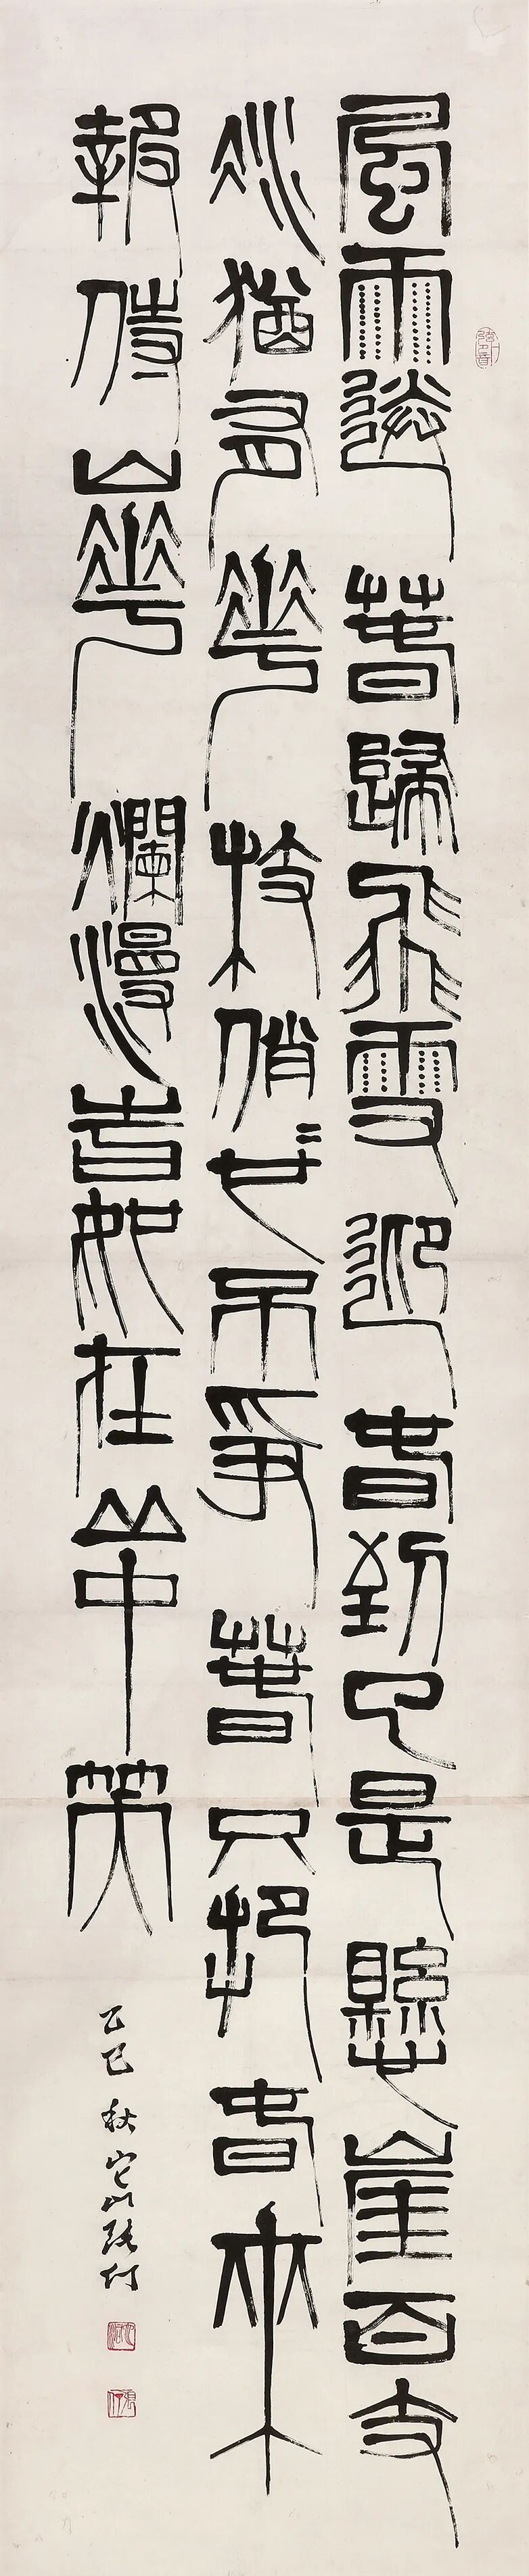 風雨送春歸飛雪迎春到已是懸崖百丈
冰猶有華枝俏〻也不爭春只把春來
報待山華爛漫時她在丛中笑
乙巳秋它山張仃